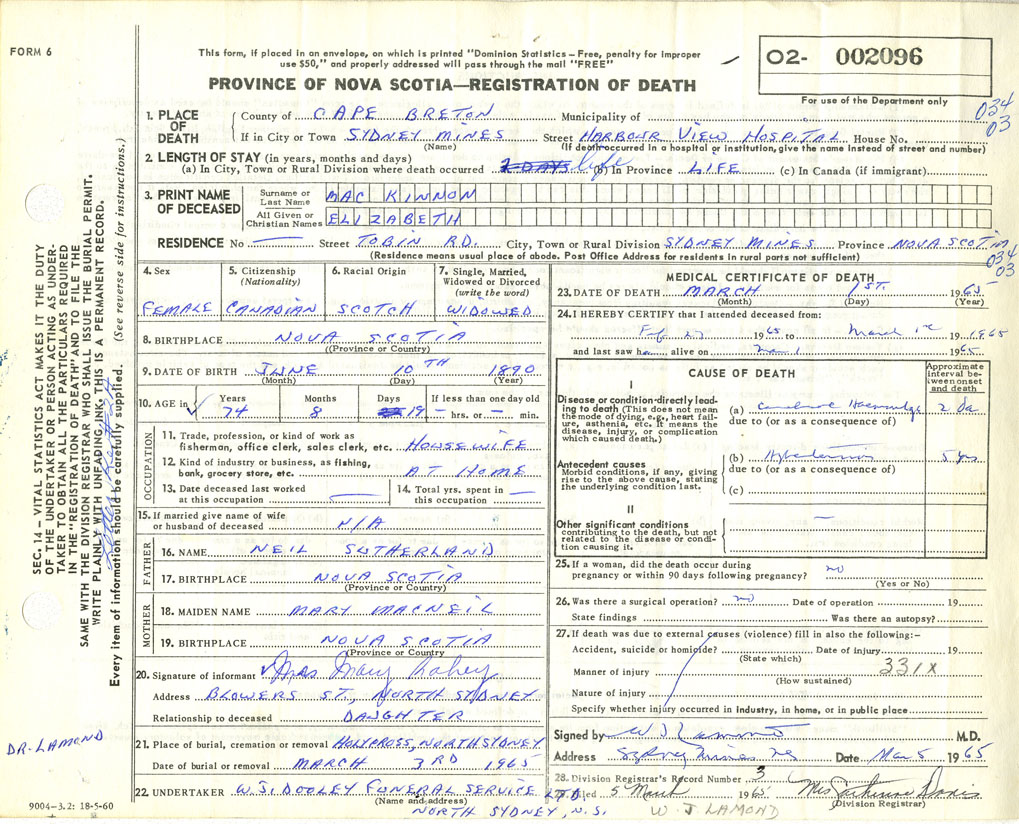 FORM 6
This form, if placed in an envelope, on which is printed "Dominion Statistics – Free, penalty for improper
use $50," and properly addressed will pass through the mail "FREE"
PROVINCE OF NOVA SCOTIA—REGISTRATION OF DEATH
O2- 002096
For use of the Department only
034
03
1. PLACE OF DEATH
County of CAPE BRETON Municipality of
If in City or Town SYDNEY MINES Street HARBOUR VIEW HOSPITAL House No.
(Name) (If death occurred in a hospital or institution, give the name instead of street and number)
2. LENGTH OF STAY (in years, months and days)
(a) In City, Town or Rural Division where death occurred 2 DAYS life (b) In Province LIFE (c) In Canada (if immigrant)
3. PRINT NAME OF DECEASED
Surname or Last Name MAC KINNON
All Given or Christian Names ELIZABETH
RESIDENCE No — Street TOBIN RD. City, Town or Rural Division SYDNEY MINES Province NOVA SCOTIA
(Residence means usual place of abode. Post Office Address for residents in rural parts not sufficient)
034
03
4. Sex 5. Citizenship (Nationality) 6. Racial Origin 7. Single, Married, Widowed or Divorced (write the word)
FEMALE CANADIAN SCOTCH WIDOWED
8. BIRTHPLACE NOVA SCOTIA
(Province or Country)
9. DATE OF BIRTH JUNE 10TH 1890
(Month) (Day) (Year)
10. AGE in Years Months Days If less than one day old
74 8 19 — hrs. or — min.
OCCUPATION
11. Trade, profession, or kind of work as
fisherman, office clerk, sales clerk, etc. HOUSEWIFE
12. Kind of industry or business, as fishing,
bank, grocery store, etc. AT HOME
13. Date deceased last worked at this occupation —
14. Total yrs. spent in this occupation —
15. If married give name of wife
or husband of deceased N/A
FATHER
16. NAME NEIL SUTHERLAND
17. BIRTHPLACE NOVA SCOTIA
(Province or Country)
MOTHER
18. MAIDEN NAME MARY MACNEIL
19. BIRTHPLACE NOVA SCOTIA
(Province or Country
20. Signature of informant Mrs Mary Lahey
Address BLOWERS ST., NORTH SYDNEY
Relationship to deceased DAUGHTER
21. Place of burial, cremation or removal HOLYCROSS, NORTH SYDNEY
Date of burial or removal MARCH 3RD 1965
22. UNDERTAKER W.J. DOOLEY FUNERAL SERVICE LTD.
(Name and address)
NORTH SYDNEY, N.S.
MEDICAL CERTIFICATE OF DEATH
23. DATE OF DEATH MARCH 1ST. 1965
(Month) (Day) (Year)
24. I HEREBY CERTIFY that I attended deceased from:
Feb 27 1965 to March 1st 1965
and last saw h alive on Mar 1 1965
CAUSE OF DEATH
Approximate interval between onset and death
I
Disease or condition directly leading to death (This does not mean the mode of dying, e.g., heart failure, asthenia, etc. It means the disease, injury, or complication which caused death.)
(a) Haemorrhage 2 da
due to (or as a consequence of)
Antecedent causes
Morbid conditions, if any, giving rise to the above cause, stating the underlying condition last.
(b) Hypertension 5 yrs
due to (or as a consequence of)
(c)
II
Other significant conditions
contributing to the death, but not related to the disease or condition causing it.
—
25. If a woman, did the death occur during
pregnancy or within 90 days following pregnancy? no
(Yes or No)
26. Was there a surgical operation? no Date of operation 19
State findings Was there an autopsy?
27. If death was due to external causes (violence) fill in also the following:–
Accident, suicide or homicide? Date of injury 19
(State which)
Manner of injury 331X
(How sustained)
Nature of injury
Specify whether injury occurred in industry, in home, or in public place
Signed by W J Lamond M.D.
Address Sydney Mines NS Date Mar 5 1965
28. Division Registrar's Record Number 3
Filed 5 March 1965 Mrs Davis
(Division Registrar)
W J LAMOND
SEC. 14 – VITAL STATISTICS ACT MAKES IT THE DUTY
OF THE UNDERTAKER OR PERSON ACTING AS UNDER-
TAKER TO OBTAIN ALL THE PARTICULARS REQUIRED
IN THE "REGISTRATION OF DEATH" AND TO FILE THE
SAME WITH THE DIVISION REGISTRAR WHO SHALL ISSUE THE BURIAL PERMIT.
WRITE PLAINLY WITH UNFADING INK, THIS IS A PERMANENT RECORD.
Every item of information should be carefully supplied. (See reverse side for instructions.)
DR. LAMOND
9004-3.2: 18-5-60